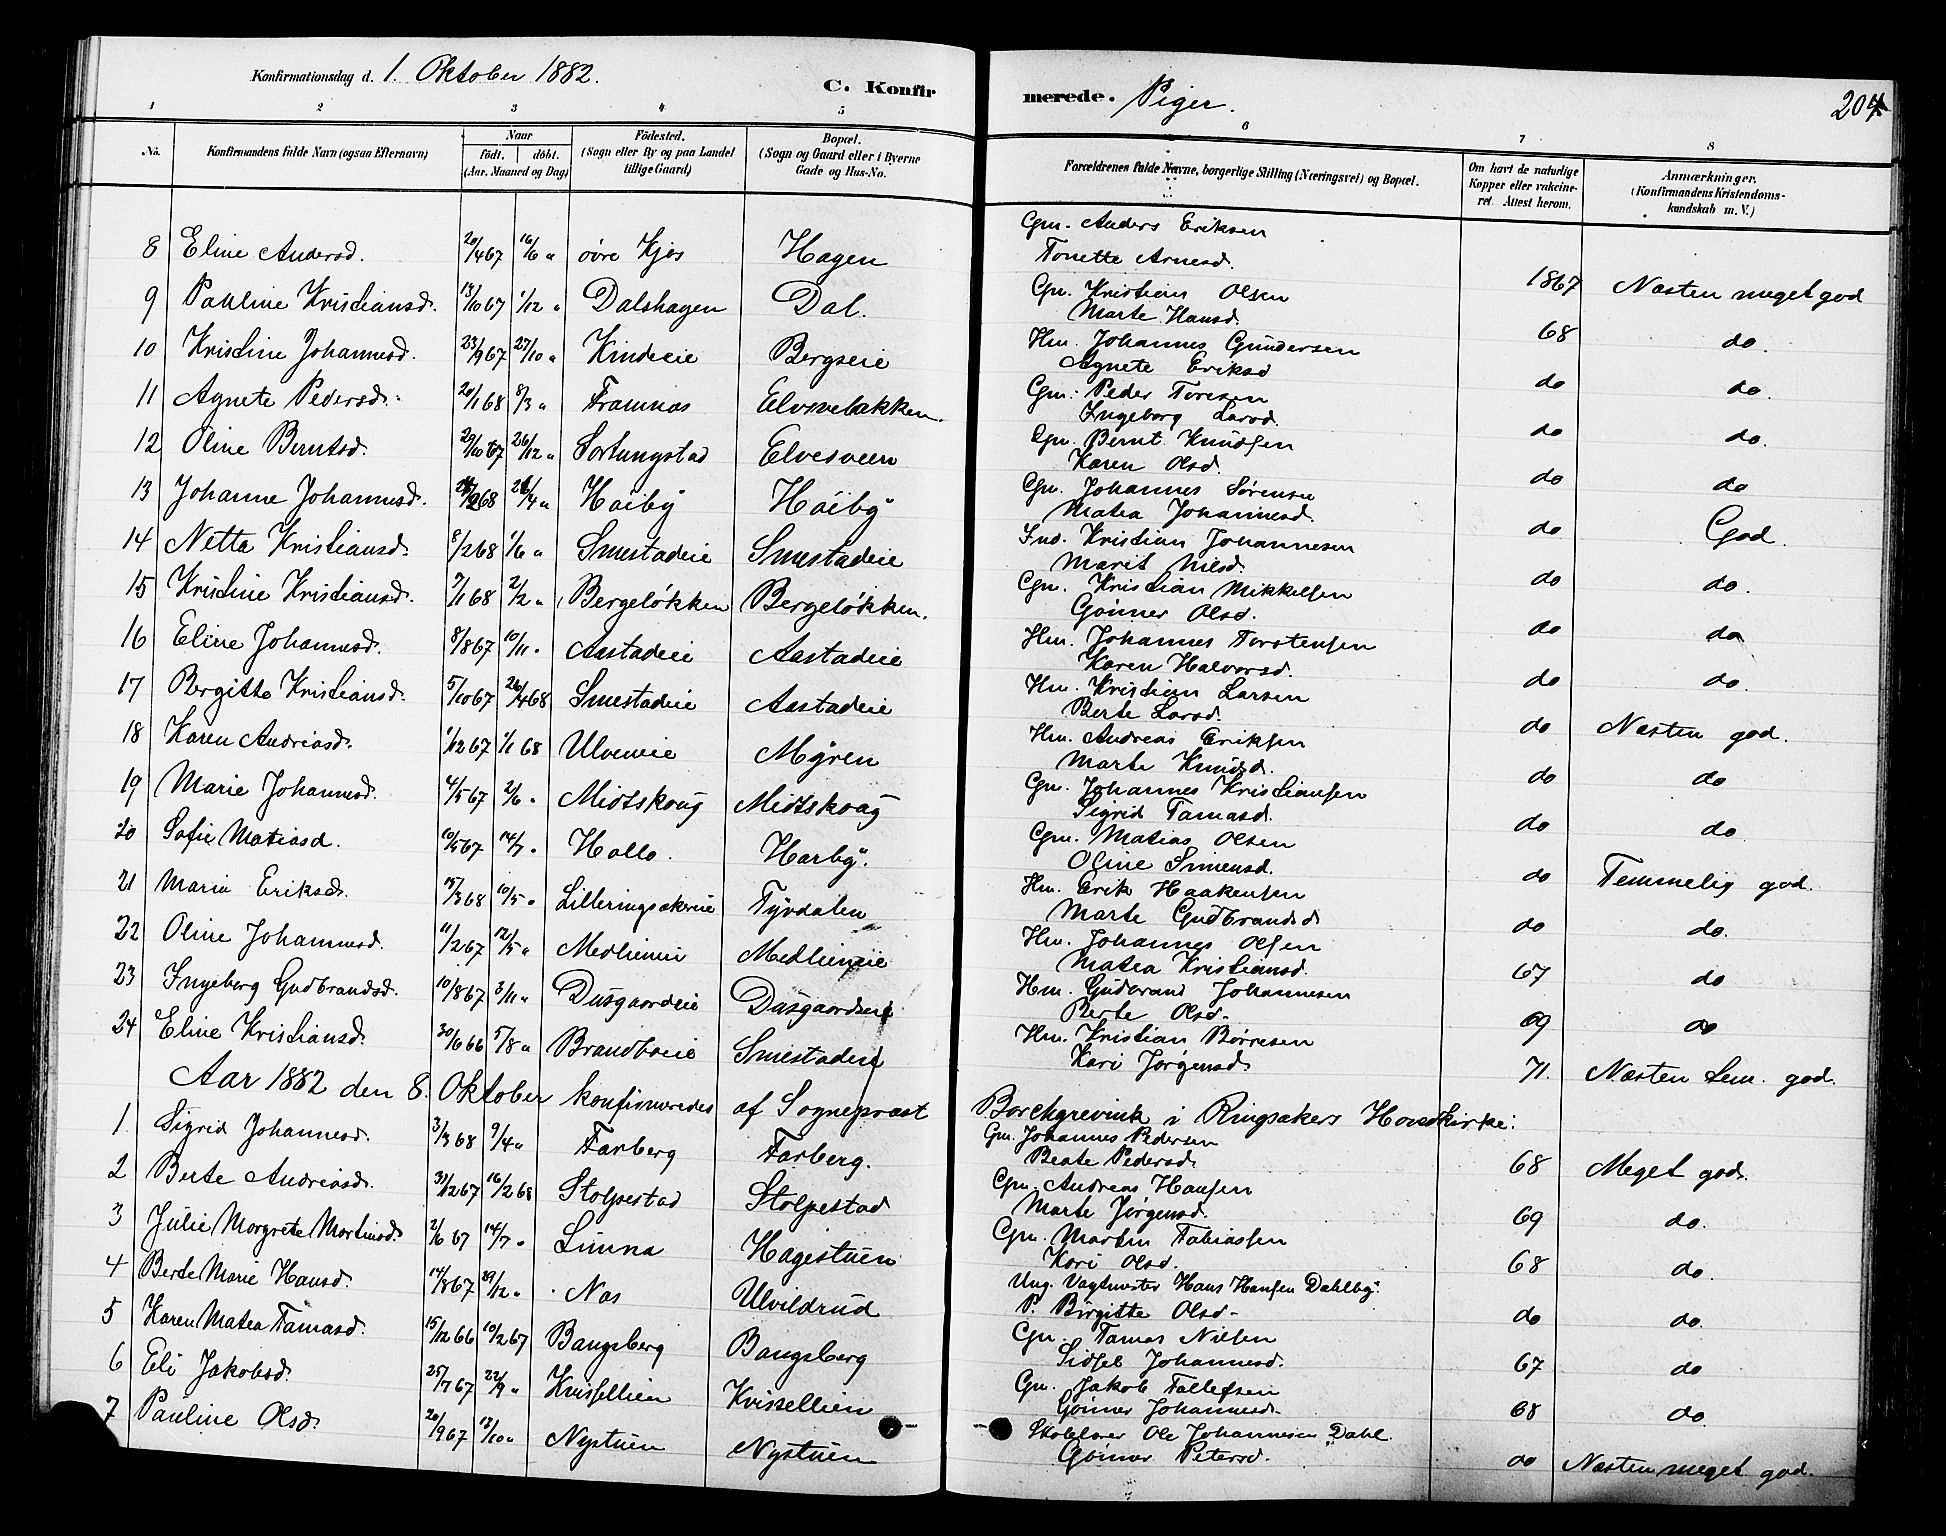 Konfirmationsdag d. 1. Oktober 1882.
C. Konfirmerede. Piger.
204
1 2 3 4 5 6 7 8
No. Konfirmandens fulde Navn (ogsaa Efternavn) Naar födt. döbt. (Aar, Maaned og Dag) Födested. (Sogn eller By og paa Landet tillige Gaard) Bopæl. (Sogn og Gaard eller i Byerne Gade og Hus-No. Forældrenes fulde Navne, borgerlige Stilling (Næringsvei) og Bopæl. Om havt de naturlige Kopper eller vakcineret. Attest herom. Anmærkninger. (Konfirmandens Kristendomskundskab m. V.)
8 Eline Andersd. 20/4 67 16/6 " øvre Kjos Hagen Gm. Anders Eriksen Tonette Arnesd. 1867 Næsten meget god
9 Pauline Kristiansd. 13/10 67 1/12 " Dalshagen Dal. Gm. Kristian Olsen Marte Hansd. 68 do.
10 Kristine Johannesd. 23/9 67 27/10 " Kindeeie Bergseie Hm. Johannes Gundersen Agnete Eriksd do do.
11 Agnete Pedersd. 20/1 68 8/3 " Framnæs Elvsvebakken Gm. Peder Toresen Ingeborg Larsd. do do.
12 Oline Berntsd. 29/10 67 26/12 " Fortungstad Elvesveen Gm. Bernt Knudsen Karen Olsd. do do
13 Johanne Johannesd. 68 26/4 " Høiby Høiby Gm. Johannes Sørensen Matea Johannesd. do God
14 Netta Kristiansd. 8/2 68 1/6 " Smestadeie Smestadeie Ind. Kristian Johannesen Marit Nilsd. do do.
15 Kristine Kristiansd. 7/1 68 2/2 " Bergeløkken Bergeløkken. Gm. Kristian Mikkelsen Gønner Olsd. do do
16 Eline Johannesd. 8/8 67 10/11 " Aastadeie Aastadeie Hm. Johannes Torstensen Karen Halvorsd. do do.
17 Bergitte Kristiansd. 5/10 67 26/4 68 Smestadeie Aastadeie Hm. Kristian Larsen Berte Larsd. do Næsten god.
18 Karen Andreasd. 1/12 67 1/1 68 Ulveneie Myren Hm. Andreas Eriksen Marte Knudsd. do do
19 Marie Johannesd. 4/5 67 2/6 " Midtskoug Midtskoug Gm. Johannes Kristiansen Sigrid Tamasd. do do.
20 Sofie Matiasd. 10/5 67 14/7 " Hollo. Harby. Gm. Matias Olsen Oline Simensd. do Temmelig god.
21 Maria Eriksd. 15/3 68 10/5 " Lilleringsakereie Tyvdalen Hm. Erik Haakensen Marte Gudbrandsd do do.
22 Oline Johannesd. 11/2 67 12/5 " Medlieneie Medlieneie Hm. Johannes Olsen Matea Kristiansd. 67 do
23 Ingeborg Gudbrandsd. 10/8 67 3/11 " Dusgaardeie Dusgaardseie Hm. Gudbrand Johannesen Berte Olsd. 69 do
24 Eline Kristiansd. 30/6 66 5/8 " Brandboeie Smestadeie Hm. Kristian Børresen Kari Jørgensd. 71. Næsten tem. god.
Aar 1882 den 8. Oktober konfirmeredes af Sogneprast Borchgrevink i Ringsakers Hovedkirke:
1. Sigrid Johannesd. 3/3 68 9/4 " Farberg Farberg. Gm. Johannes Pedersen Beate Pedersd. 68 Meget god.
2 Berte Andreasd. 31/12 67 16/2 68 Stolpestad Stolpestad Gm. Andreas Hansen Marte Jørgensd. 69 do.
3 Julie Margrete Martinsd. 2/6 67 14/7 " Limna Hagestuen Gm. Martin Tobiassen Kari Olsd. 68 do.
4 Berte Marie Hansd. 14/8 67 29/12 " Næs Ulvildrud Ung. Vagtmester Hans Hansen Dahlby. P. Birgitte Olsd. do do.
5 Karen Matea Tamasd. 15/12 66 10/2 67 Bangsberg Bangsberg Gm. Tamas Nilsen Sidsel Johannesd. 67 do
6 Eli Jakobsd. 25/7 67 22/9 " Kvisellien Kvissellien Gm. Jakob Tollefsen Gønner Johannesd. 68 do.
7 Pauline Olsd. 20/9 67 13/10 " Nystuen Nystuen Skolelærer Ole Johannesen Dahl. Gønner Petersd. do Næsten meget god.